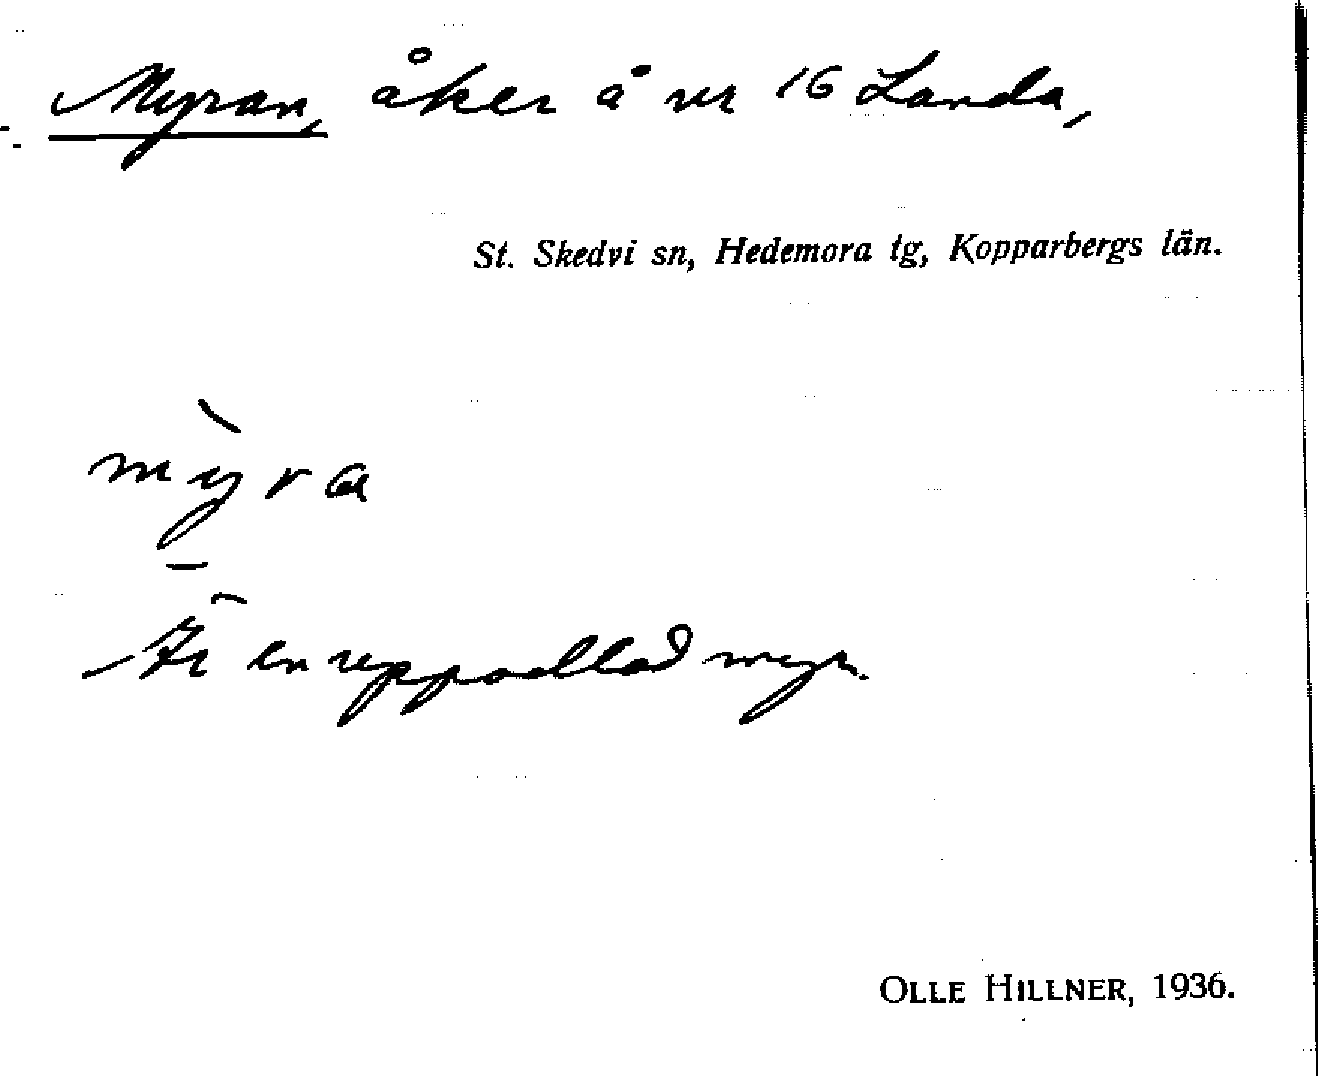 Myran, åker å nr 16 Landa,
St. Skedvi sn, Hedemora tg, Kopparbergs län.
mỳ̠ra
Är en uppodlad myr.
OLLE HILLNER, 1936.